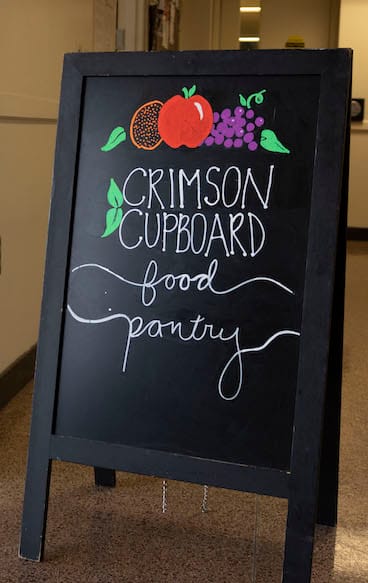 CRIMSON
CUPBOARD
food
pantry